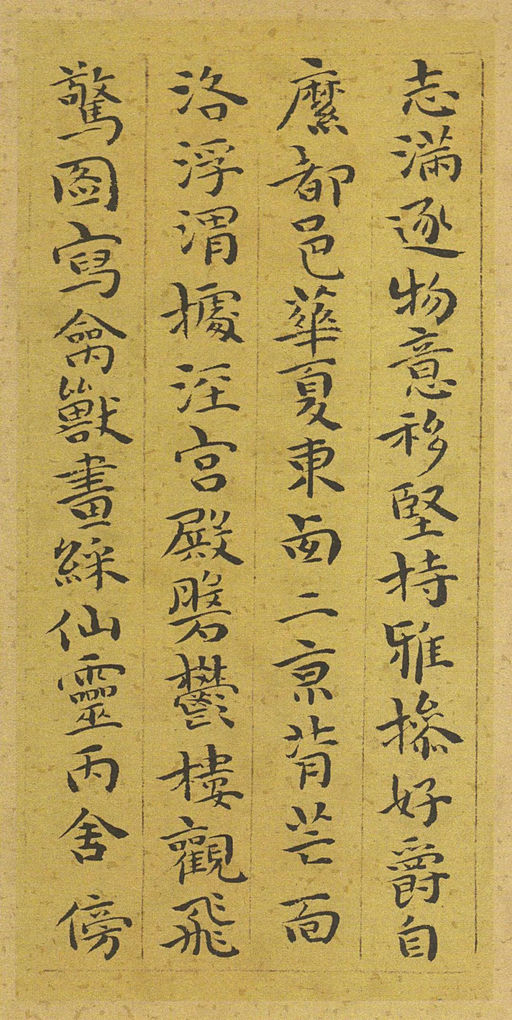 志滿逐物意移堅持雅操好爵自
縻都邑華夏東西二京背芒面
洛浮渭據涇宮殿磐鬱樓觀飛
驚圖寫禽獸畫綵仙靈丙舍傍